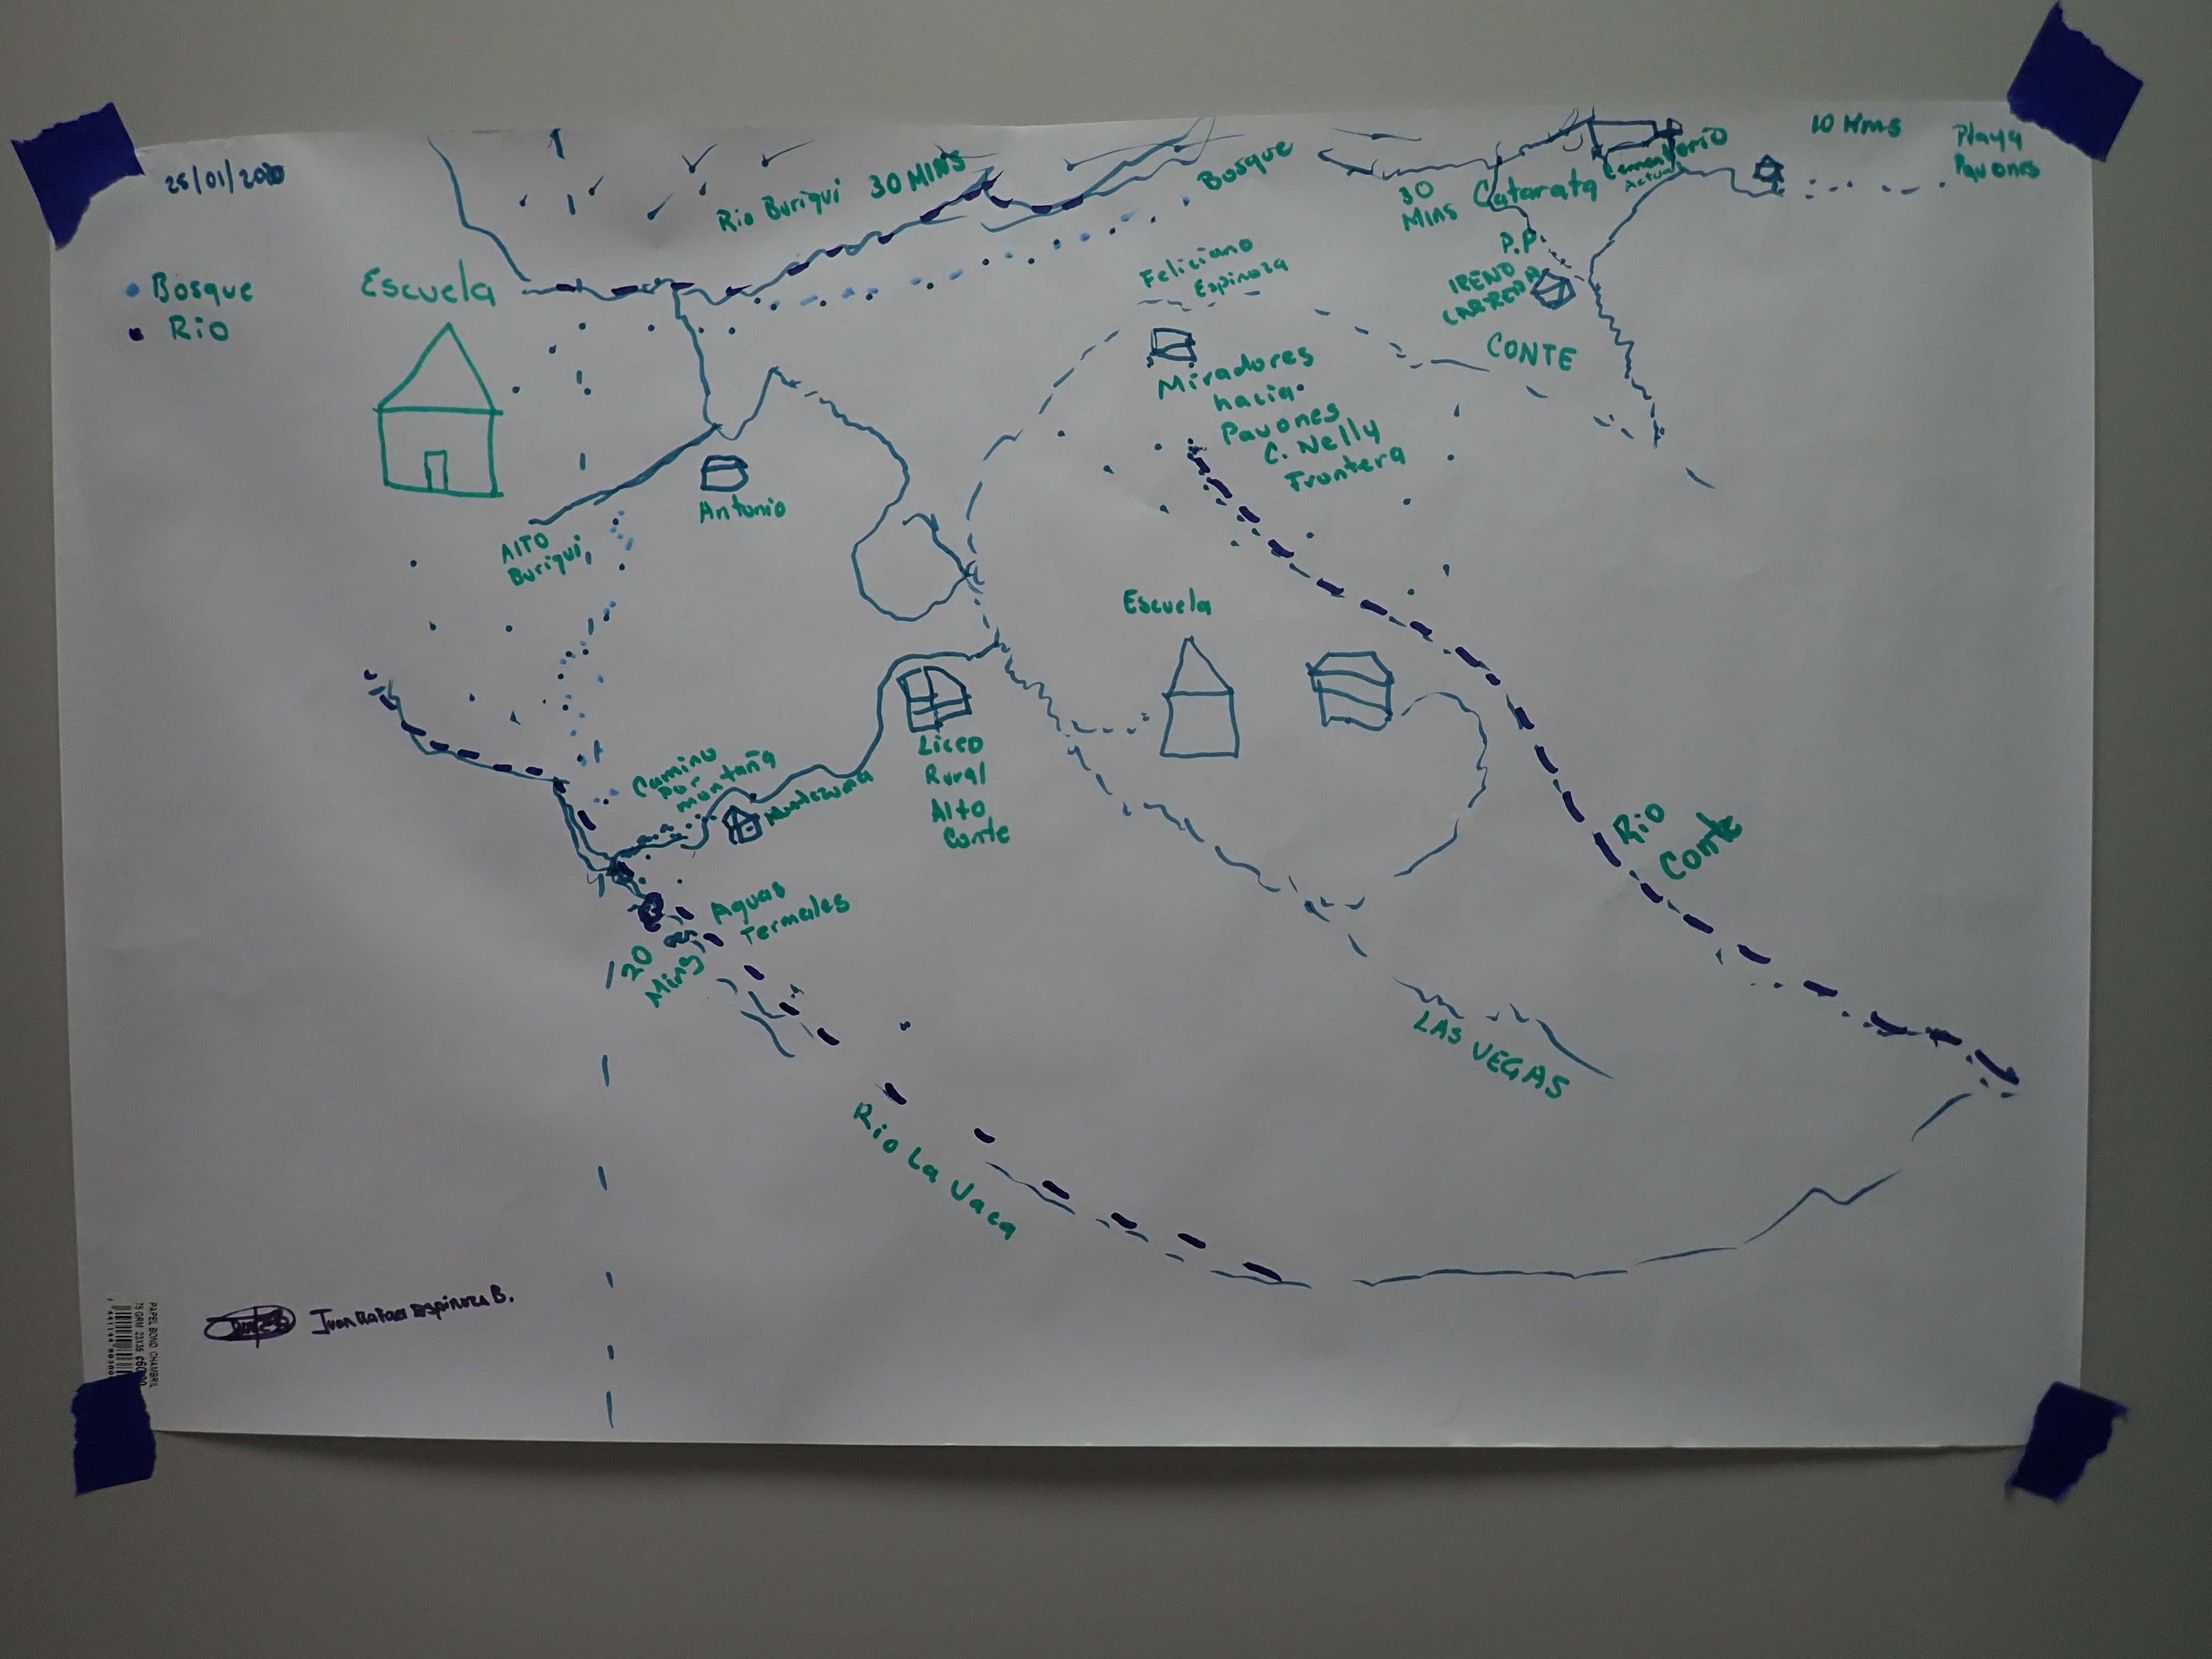 25/01/2020
Bosque
Rio
Escuela
Rio Buriqui 30 MINS
Bosque
30
Mins
Catarata
Cementerio
Actual
10 Kms
Playa
Pavones
P.P.
Feliciano
Espinoza
CONTE
Miradores
hacia
Pavones
C. Nelly
Frontera
Antonio
Alto
Buriqui
Escuela
Camino
por
montaña
Liceo
Rural
Alto
Conte
Rio
Conte
Aguas
Termales
20
Mins
LAS VEGAS
Rio La Vaca
Juan Rafael Espinoza B.
PAPEL BOND CHAMBRIL